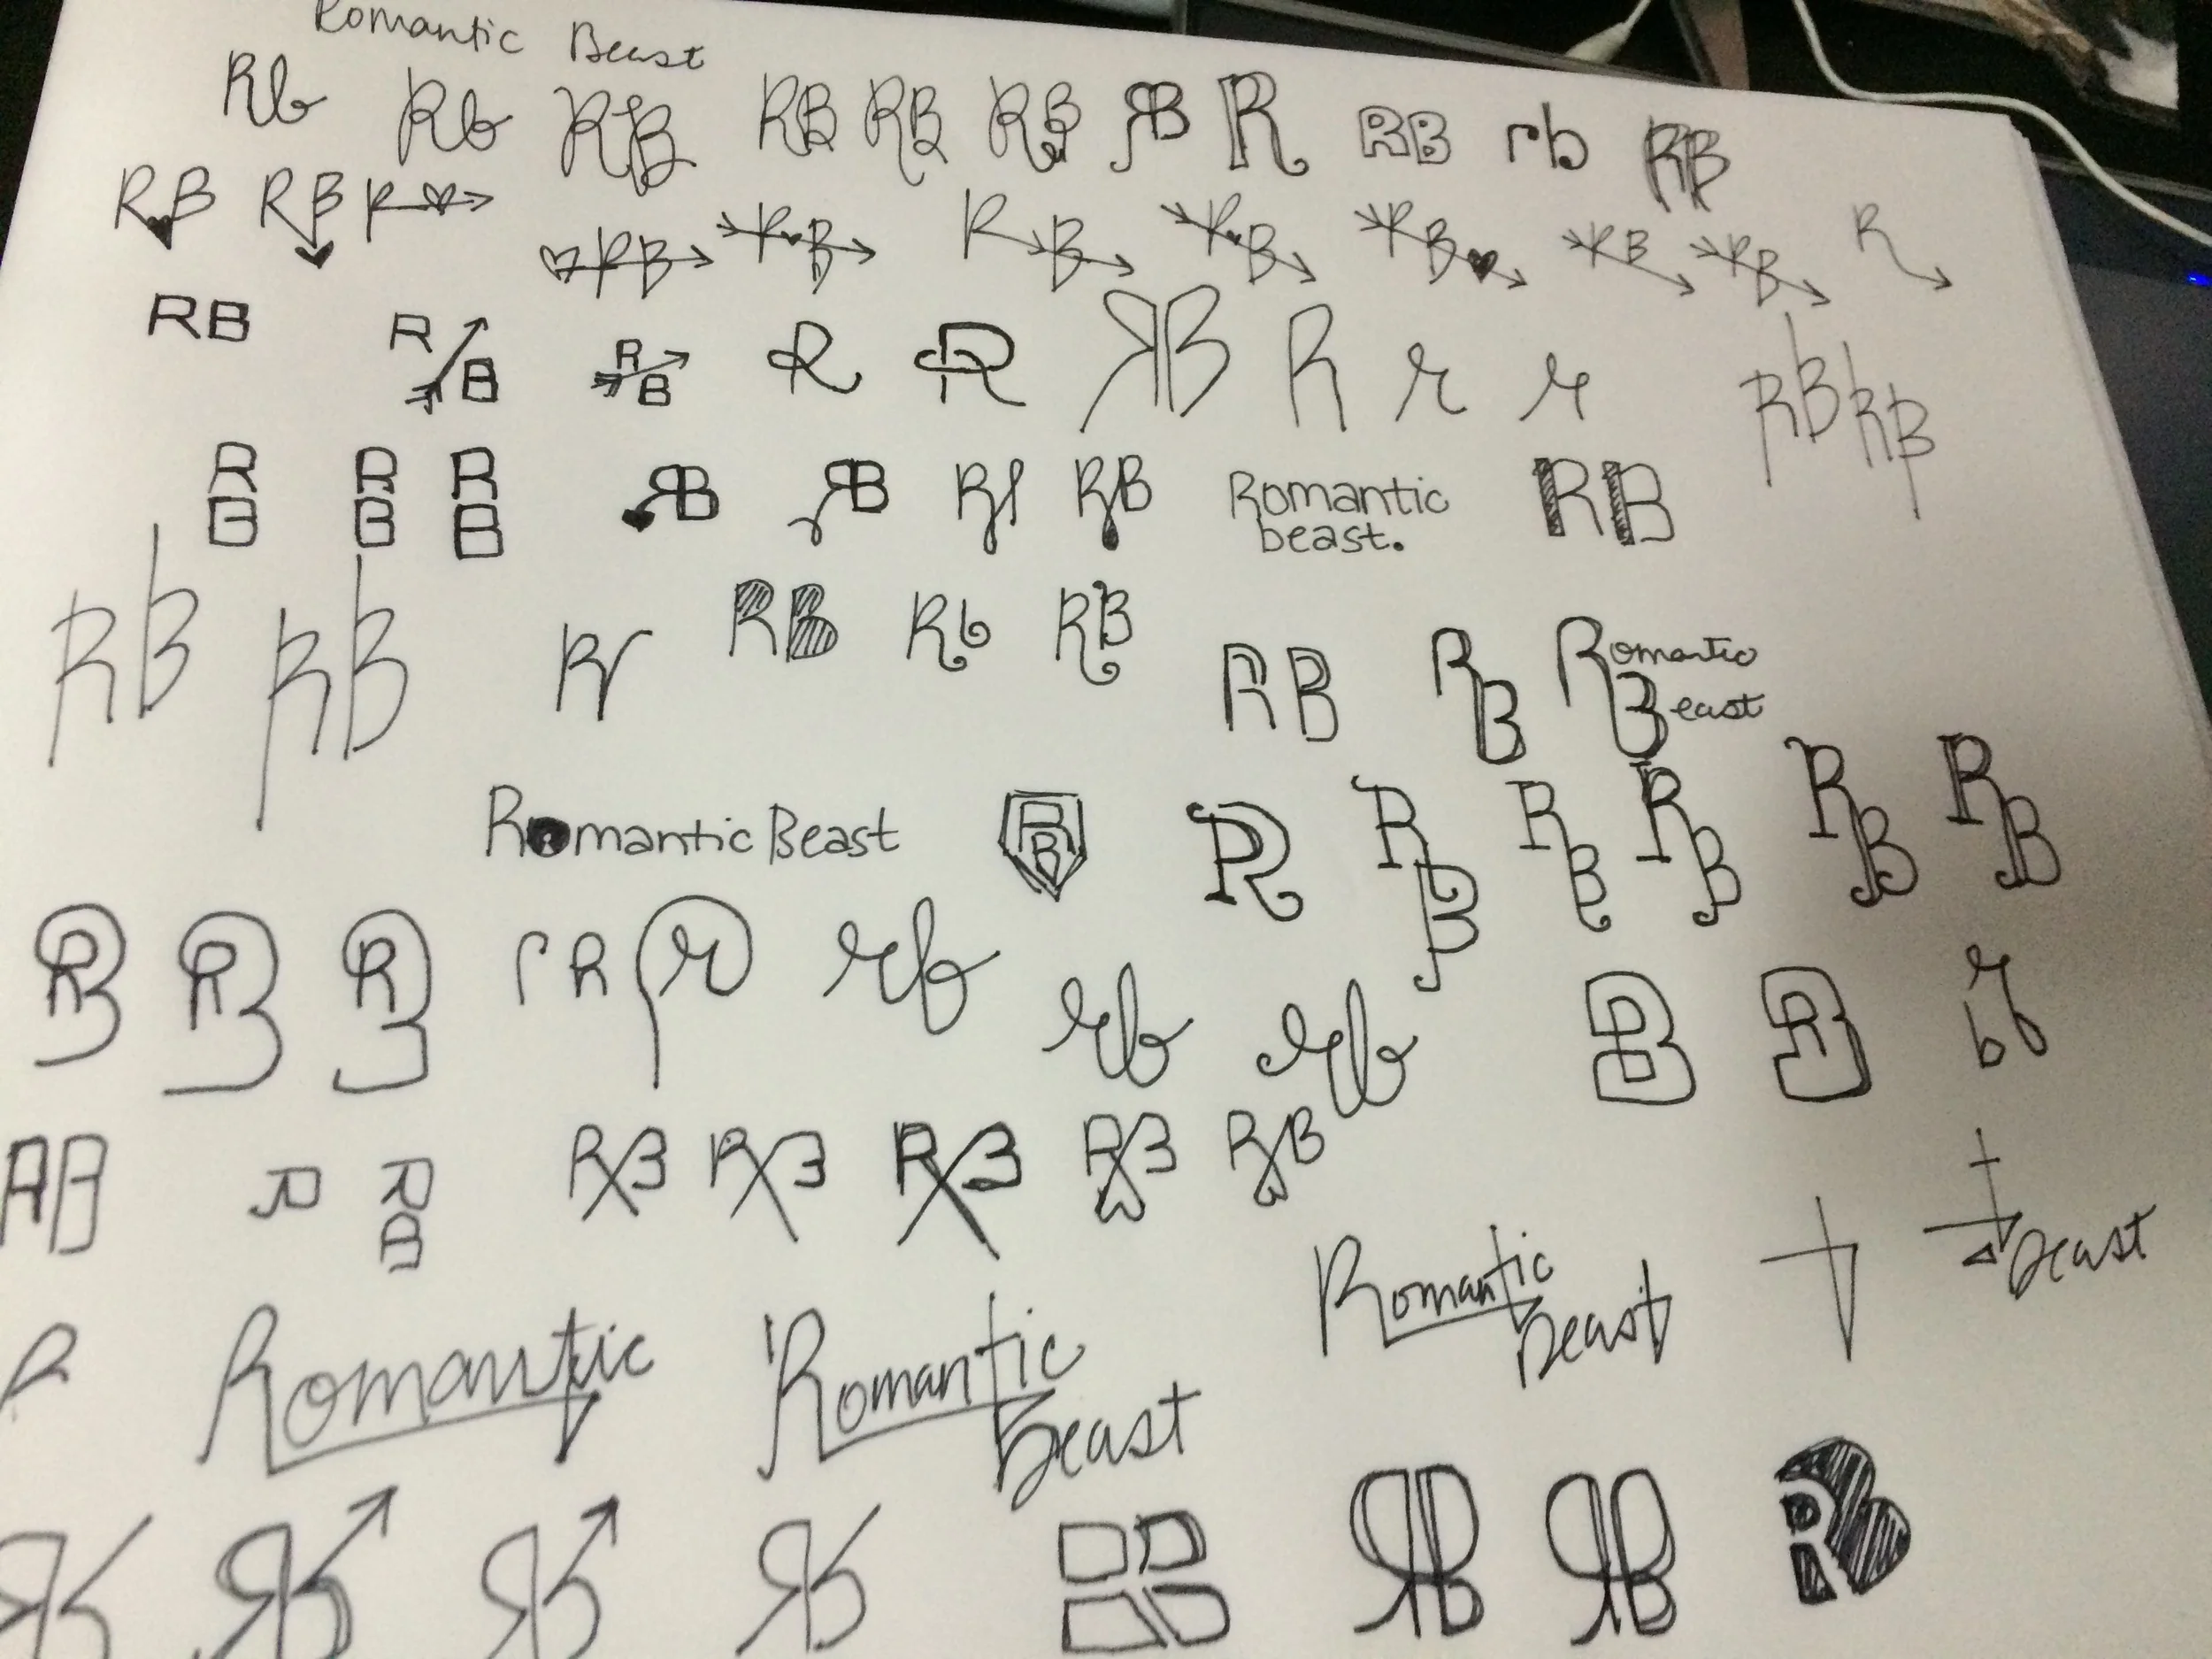 Romantic Beast
Rb Rb RB RB RB RB RB R RB rb RB
RB RB R RB RB RB RB RB RB RB R
RB R B R B R R RB R r r RB RB
R R R
B B B
RB RB RB Romantic RB
beast.
RB RB R RB Rb RB RB RB Romantic
Beast
Romantic Beast RB R RB RB RB RB RB
RB RB RB r R r rb rb rb B RB r
b
RB R R RB RB RB RB RB
B
Romantic
Beast beast
R Romantic Romantic
Beast
RB RB RB RB RB RB RB RB